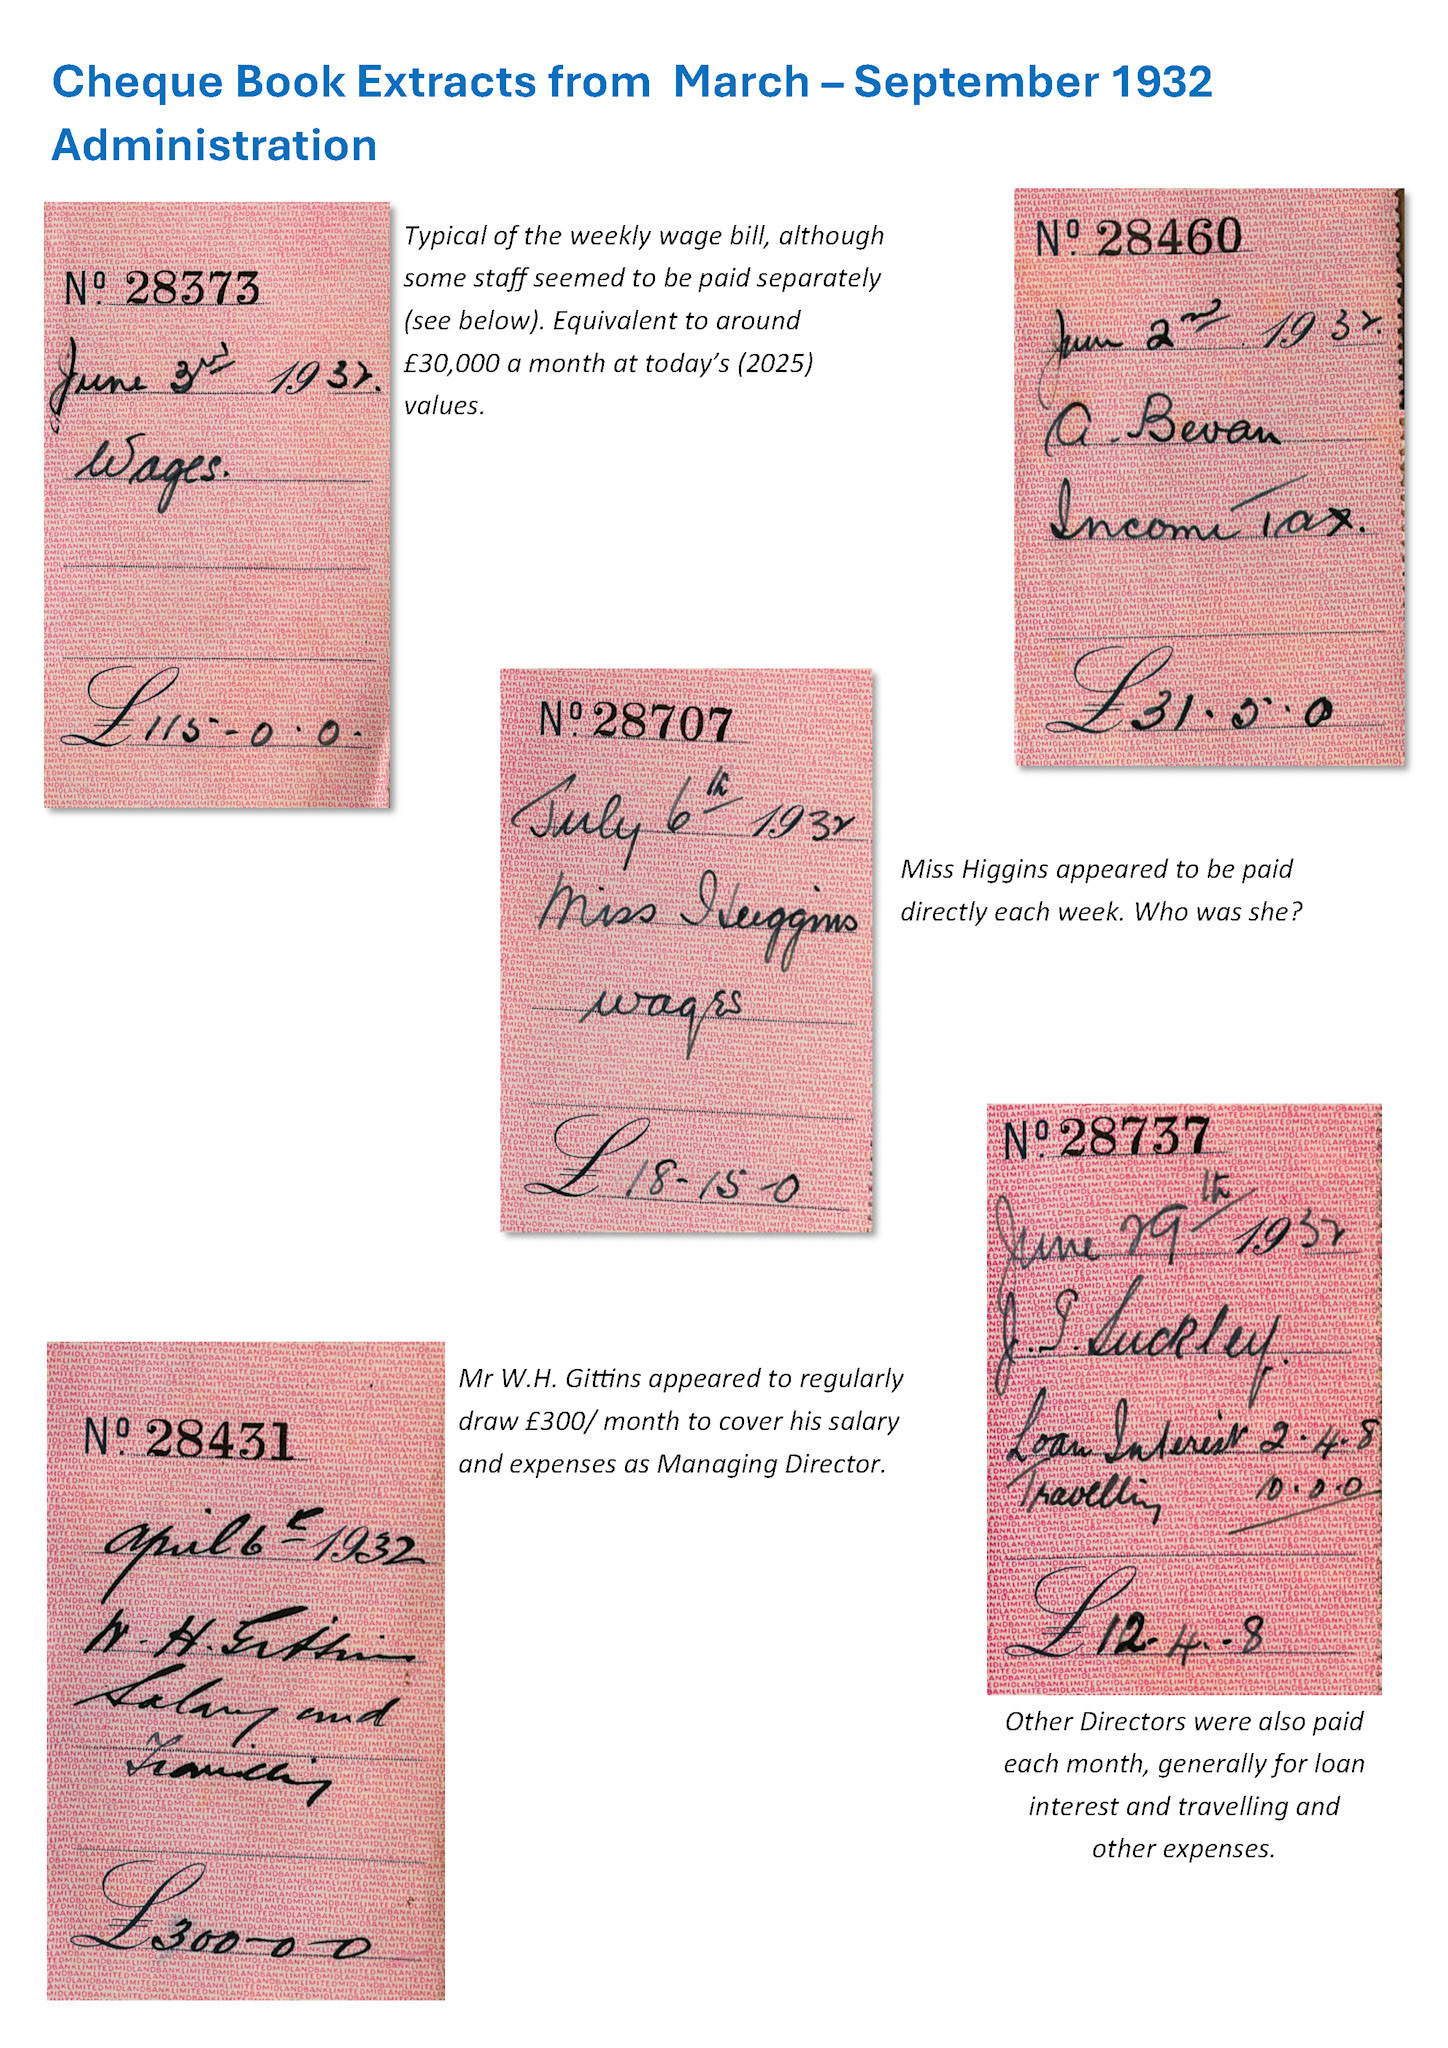 Cheque Book Extracts from March – September 1932
Administration
Nº 28373
June 3rd 1932.
Wages.
£115-0.0.
Typical of the weekly wage bill, although
some staff seemed to be paid separately
(see below). Equivalent to around
£30,000 a month at today’s (2025)
values.
Nº 28460
June 2nd 1932.
A. Bevan
Income Tax.
£31.5.0
Nº 28707
July 6th 1932
Miss Higgins
wages
£18-15-0
Miss Higgins appeared to be paid
directly each week. Who was she?
Nº 28737
June 29th 1932
J. Suckley.
Loan Interest 2.4.8
Travelling 10.0.0
£12.4.-8
Other Directors were also paid
each month, generally for loan
interest and travelling and
other expenses.
Nº 28431
April 6th 1932
W. H. Gittins
Salary and
Travelling
£300-0-0
Mr W.H. Gittins appeared to regularly
draw £300/ month to cover his salary
and expenses as Managing Director.